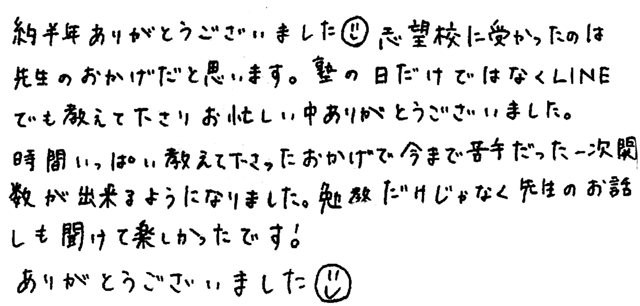 約半年ありがとうございました☺ 志望校に受かったのは
先生のおかげだと思います。塾の日だけではなくLINE
でも教えて下さりお忙しい中ありがとうございました。
時間いっぱい教えて下さったおかげで今まで苦手だった一次関
数が出来るようになりました。勉教だけじゃなく先生のお話
しも聞けて楽しかったです!
ありがとうございました☺